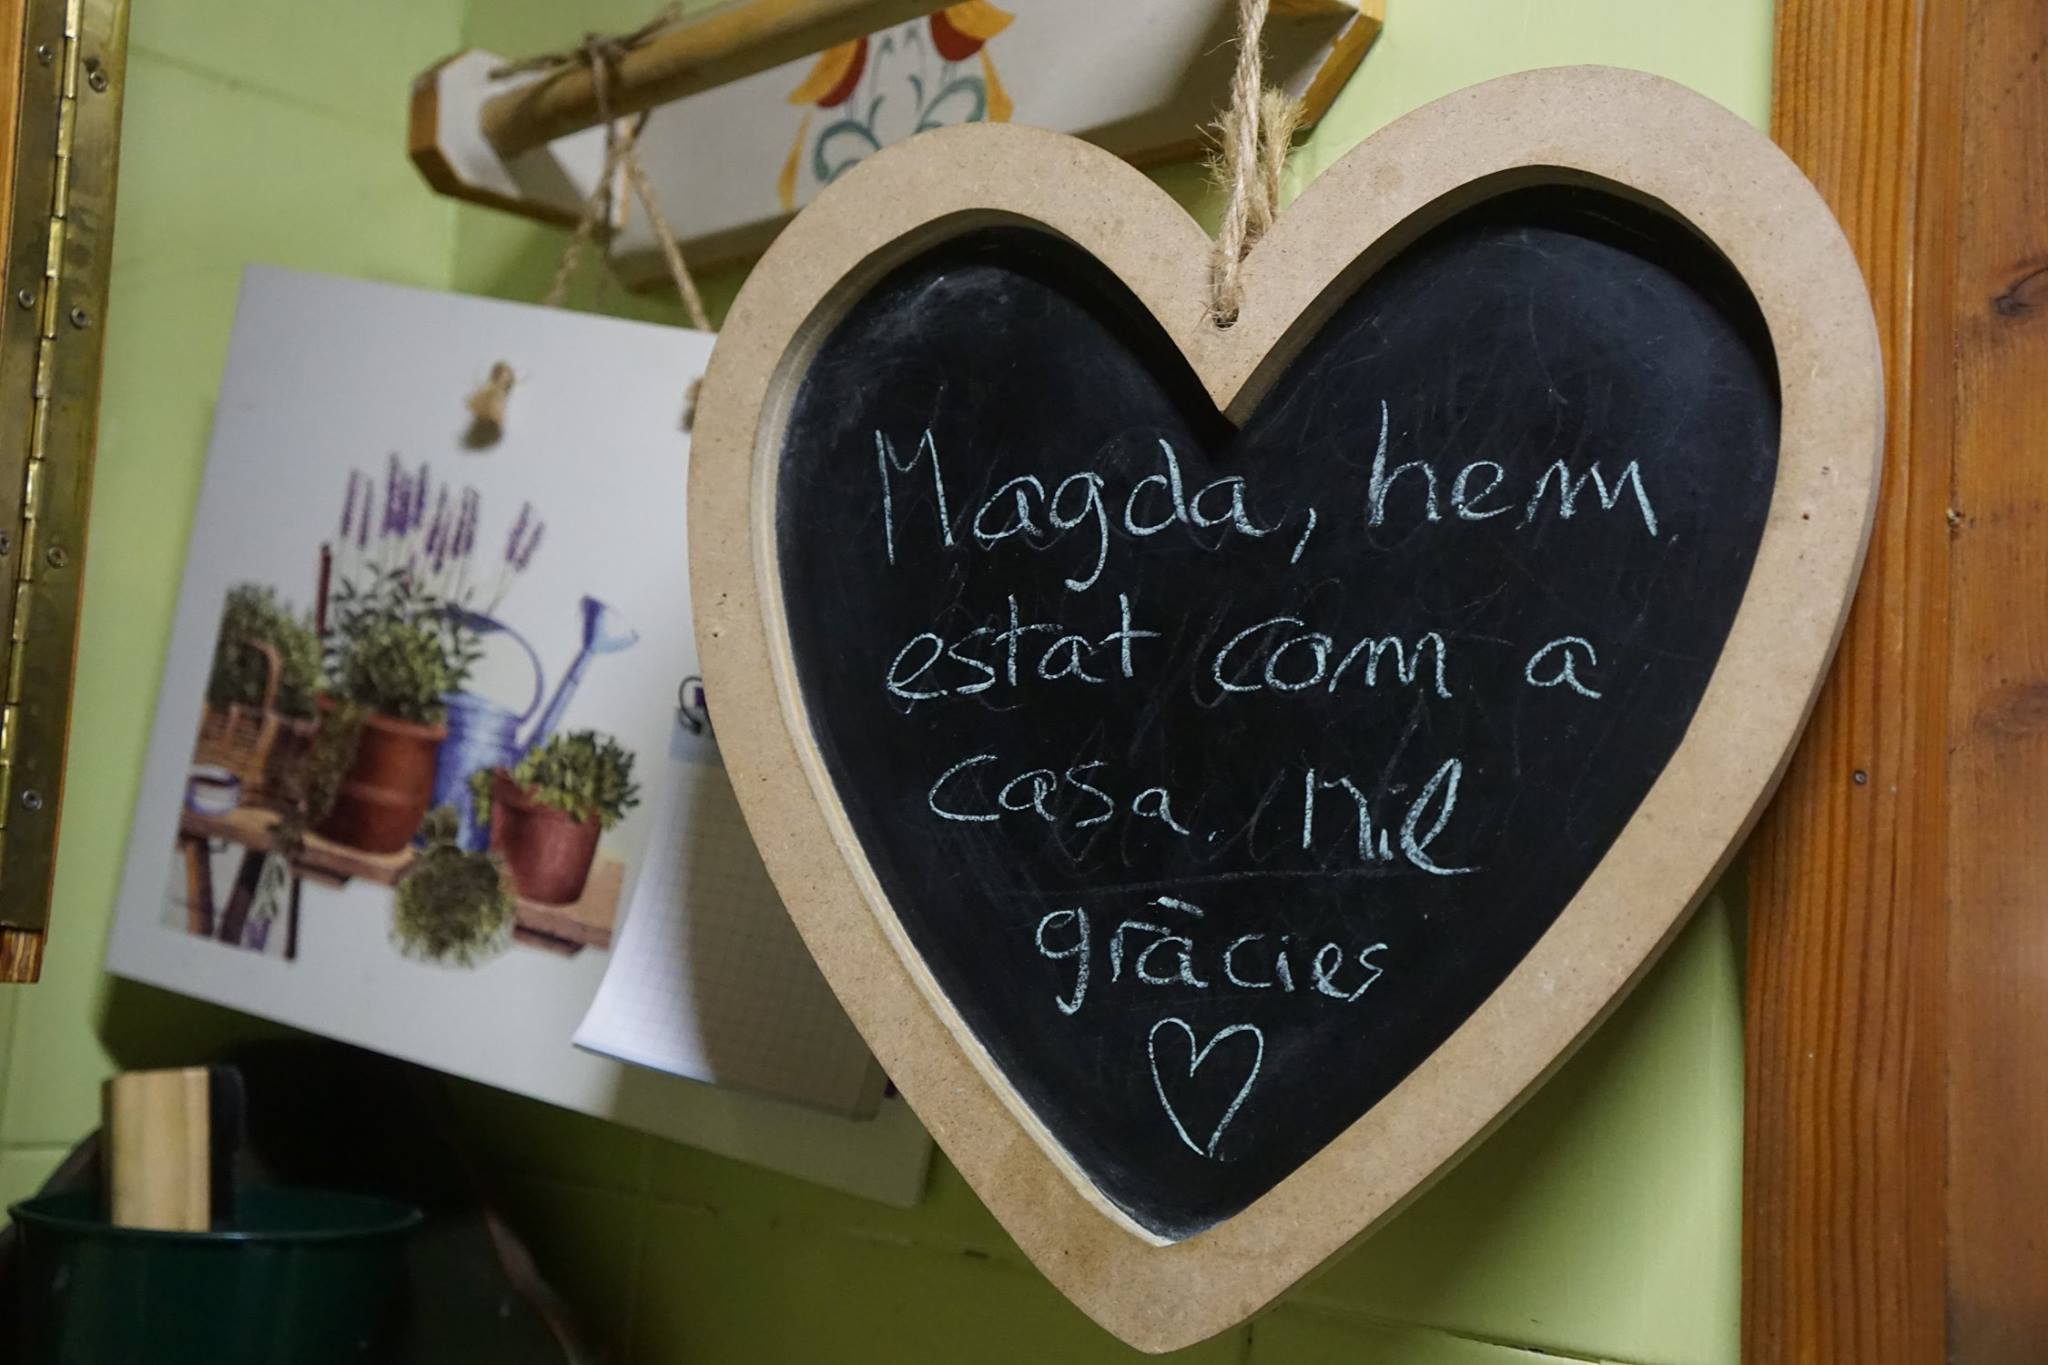 Magda, hem
estat com a
casa. Mil
gràcies